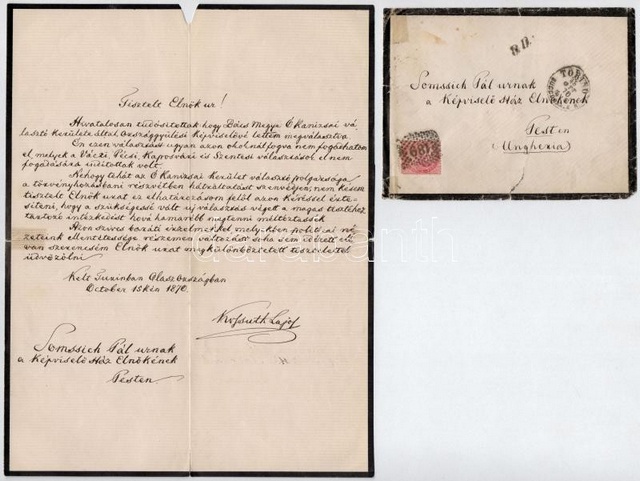 Tisztelt Elnök ur!
Hivatalosan tudósittattak hogy Bács Megye O Kanizsai vá-
lasztó kerülete által országgyülési képviselővé lettem megválasztva.
Ön ezen választást ugyan azon okoknál fogva nem fogadhatom
el melyek a Váczi, Pécsi, Kaposvári és Szentesi választások el nem
fogadására inditottak volt.
Nehogy tehát az O Kanizsai kerület választó polgársága
a törvényhozásbani részvétben hátráltatást szenvedjen, nem késem
tisztelt Elnök urat ez elhatározásom felől azon kéréssel érte-
siteni, hogy a szükségessé vált uj választás végett a magas tisztéhez
tartozó intézkedést hová hamarább megtenni méltóztassék
baráti érzelmekkel, mely-köztem politikai né-
zeteink részemen változást soha sem idézett elő
van szerencsém Elnök urat megkülönböztetett tisztelettel
üdvözölni
Kelt Turinban Olaszországban
October 15kén 1870.
Kossuth Lajos
Somssich Pál urnak
a Képviselő Ház Elnökének
Pesten
P.D.
TORINO
Somssich Pál urnak
a Képviselő Ház Elnökének
Pesten
(Ungheria)
darabanth